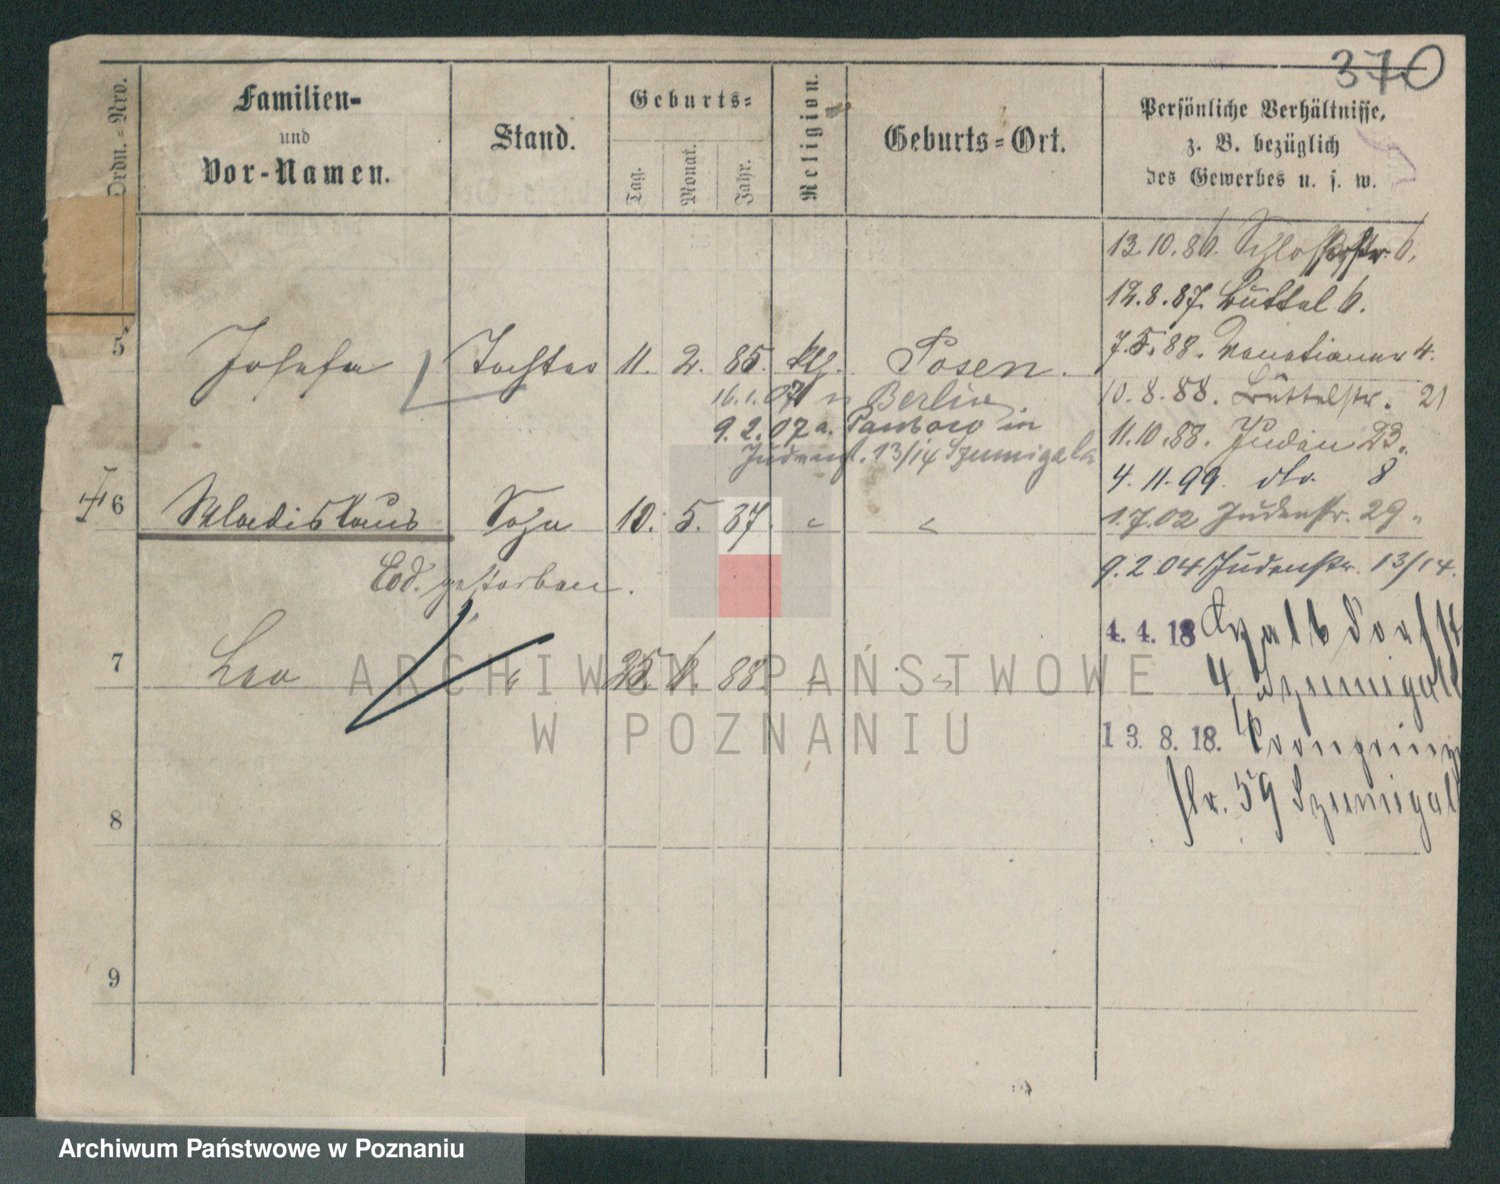 370
Ordn.=Nro.
Familien-
und
Vor-Namen.
Stand.
Geburts=
Tag.
Monat.
Jahr.
Religion.
Geburts=Ort.
Persönliche Verhältnisse,
z. B. bezüglich
des Gewerbes u. s. w.
13.10.86. Schlosserstr. 6.
12.8.87. Büttel 6.
5 Josefa Tochter 11. 2. 85. kth. Posen.
7.5.88. Venetianer 4.
16.1.07 n Berlin
10.8.88. Büttelstr. 21
9.2.07 a. in
Judenst. 13/14 Szumigala
11.10.88. Juden 23.
4.11.99. dto. 8
6 Wladislaus Sohn 10. 5. 87. " "
1.7.02 Judenstr. 29.
gestorben.
9.2.04 Judenstr. 13/14.
7 Leo " 25. 6. 88. " "
4.4.18
4 Szumigall
13.8.18.
str. 59 Szumigall
8
9
ARCHIWUM PAŃSTWOWE
W POZNANIU
Archiwum Państwowe w Poznaniu